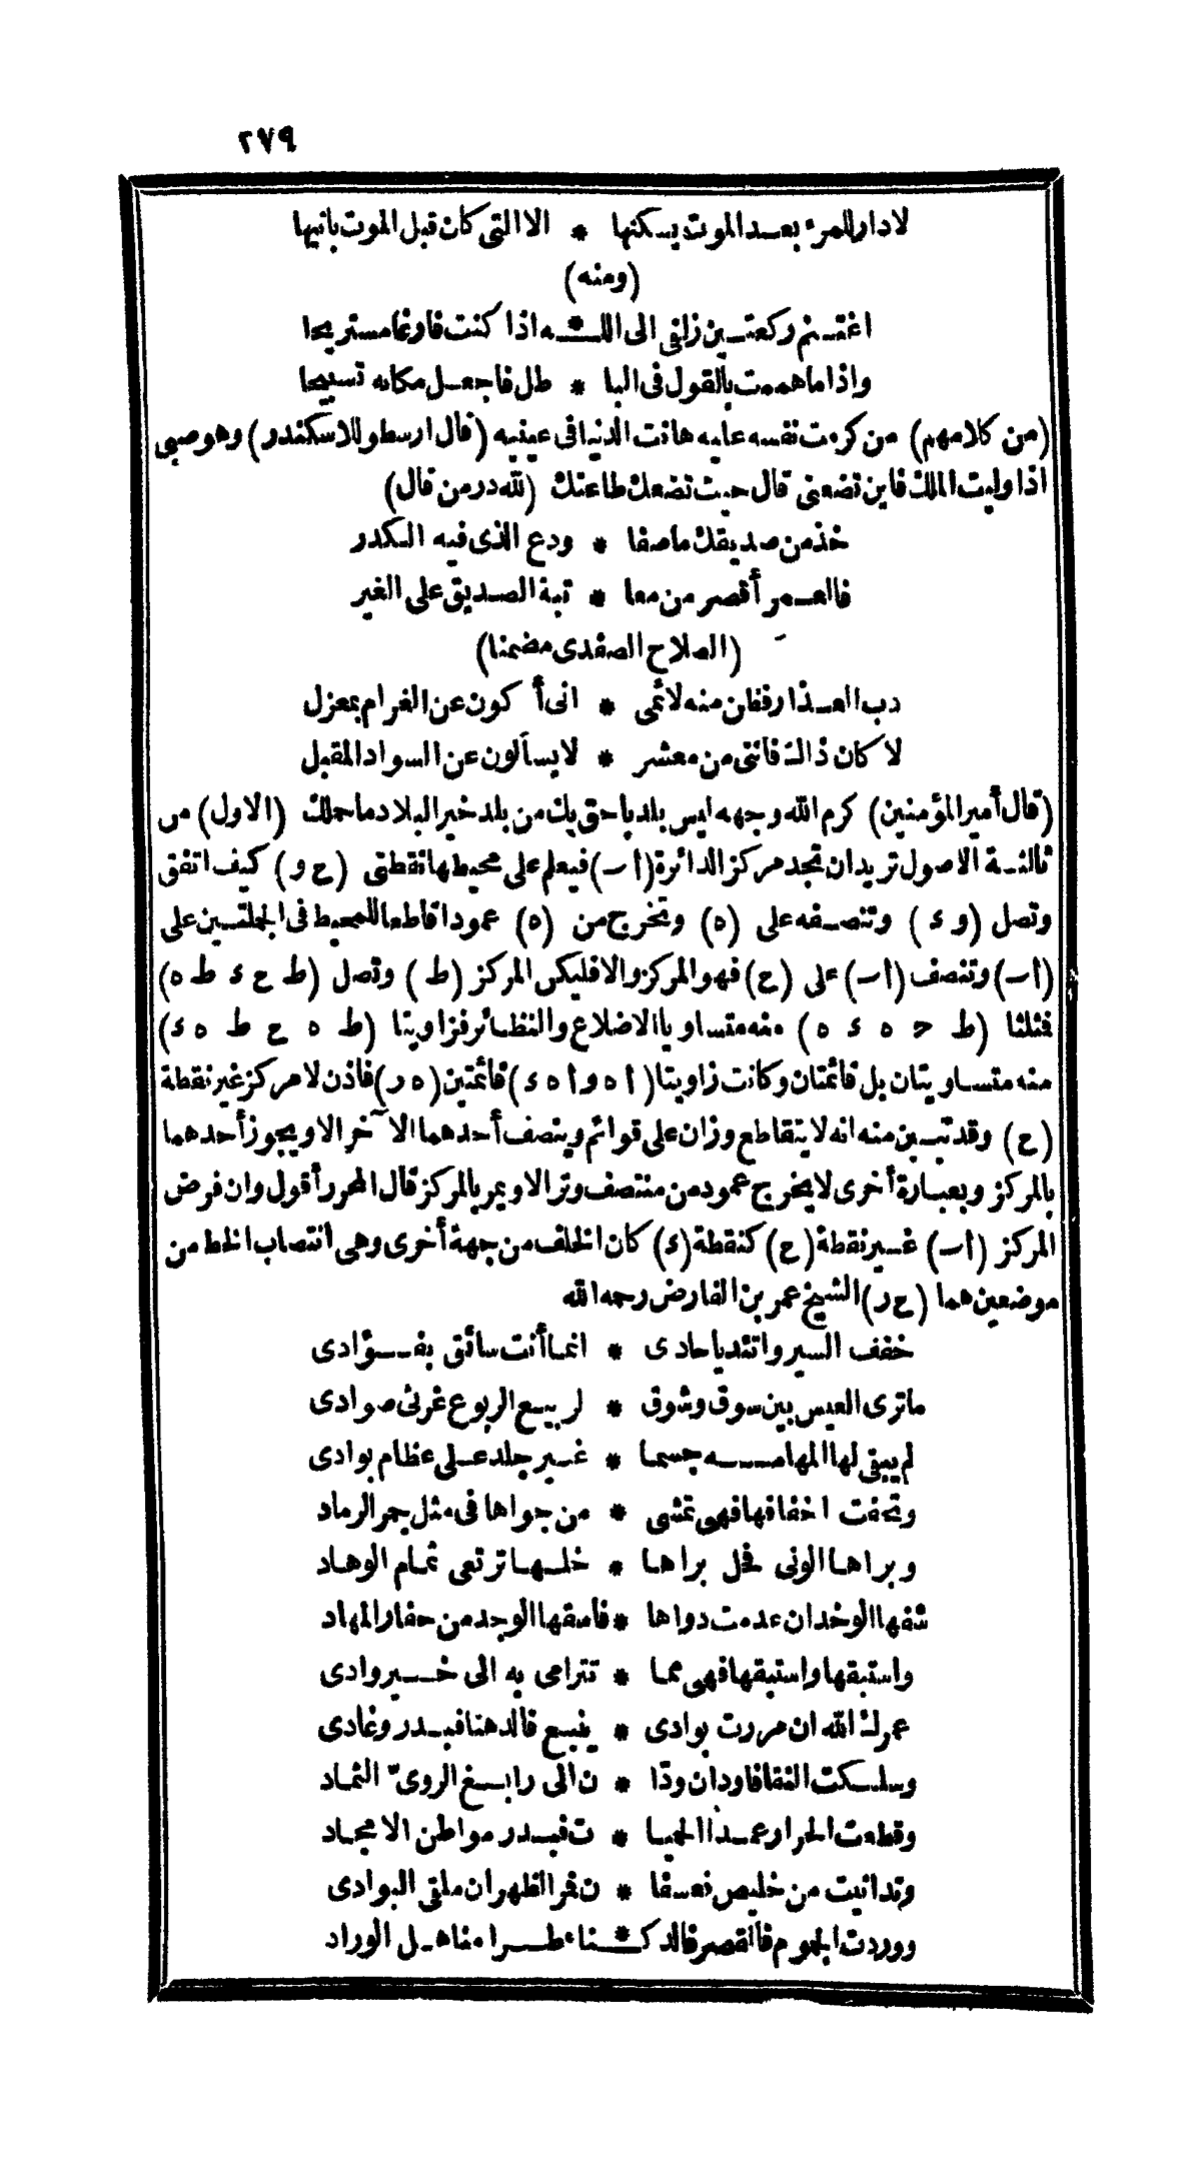 ٢٧٩
لا دار للمرء بعد الموت يسكنها * الا التي كان قبل الموت بانيها
(ومنه)
اغتنم ركعتين زلفى الى اللـ*ـه اذا كنت فارغا مستريحا
واذا ما هممت بالقول فى البا * طل فاجعل مكانه تسبيحا
(من كلامهم) من كرمت نفسه عليه هانت الدنيا فى عينيه (قال ارسطو للاسكندر) وهو صبى
اذا وليت الملك فاين تضعنى قال حيث تضعك طاعتك (لله در من قال)
خذ من صديقك ما صفا * ودع الذى فيه الكدر
فالعمر أقصر من معا * تبة الصديق على الغير
(الصلاح الصفدى مضمنا)
دب العذار فظن منه لائمى * انى أكون عن الغرام بمعزل
لا كان ذاك فاننى من معشر * لا يسألون عن السواد المقبل
(قال أمير المؤمنين) كرم الله وجهه ليس بلد باحق بك من بلد خير البلاد ما حملك (الاول) من
ثالثة الاصول تريد ان تجد مركز الدائرة (اب) فيعلم على محيطها نقطتى (ح و) كيف اتفق
وتصل (و ء) وتنصفه على (ه) وتخرج من (ه) عمودا قاطعا للمحيط فى الجلتين على
(اب) وتنصف (اب) على (ح) فهو المركز والا فليكن المركز (ط) وتصل (ط ح ء ط ه)
فثلثا (ط ح ه ء ه) منه متساويا الاضلاع والنظائر فزاويتا (ط ه ح ط ه ء)
منه متساويتان بل قائمتان وكانت زاويتا (ا ه و ا ه ء) قائمتين (ه ر) فاذن لا مركز غير نقطة
(ح) وقد تبين منه انه لا يتقاطع وزان على قوائم وينصف أحدهما الآخر الا ويجوز أحدهما
بالمركز وبعبارة أخرى لا يخرج عمود من منتصف وتر الا ويمر بالمركز قال المحرر أقول وان فرض
المركز (اب) غير نقطة (ح) كنقطة (ء) كان الخلف من جهة أخرى وهى انتصاب الخط من
موضعين هما (ح ر) الشيخ عمر بن الفارض رحمه الله
خفف السير واتئد يا حادى * انما أنت سائق بفؤادى
ما ترى العيس بين سوق وشوق * لربيع الربوع غرثى صوادى
لم يبقى لها المهامه جسما * غير جلد على عظام بوادى
وتحفت اخفافها فهى تمشى * من جواها فى مثل جمر الرماد
وبراها الونى فحل براها * خلها ترتعى ثمام الوهاد
شفها الوخد ان عدمت دواها * فاسقها الوجد من حفار المهاد
واستبقها واستبقها فهى مما * تترامى به الى خير وادى
عمرك الله ان مررت بوادى * ينبع فالدهنا فبدر وغادى
وسلكت النقا فاودان ودا * ن الى رابغ الروىّ الثماد
وقطعت الحرار عمدا الخيما * ت فبدر مواطن الامجاد
وتدانيت من خليص نعسفا * ن فمر الظهران ملقى البوادى
ووردت الجموم فالقصر فالدكـ*ـناء طرا مناهل الوراد